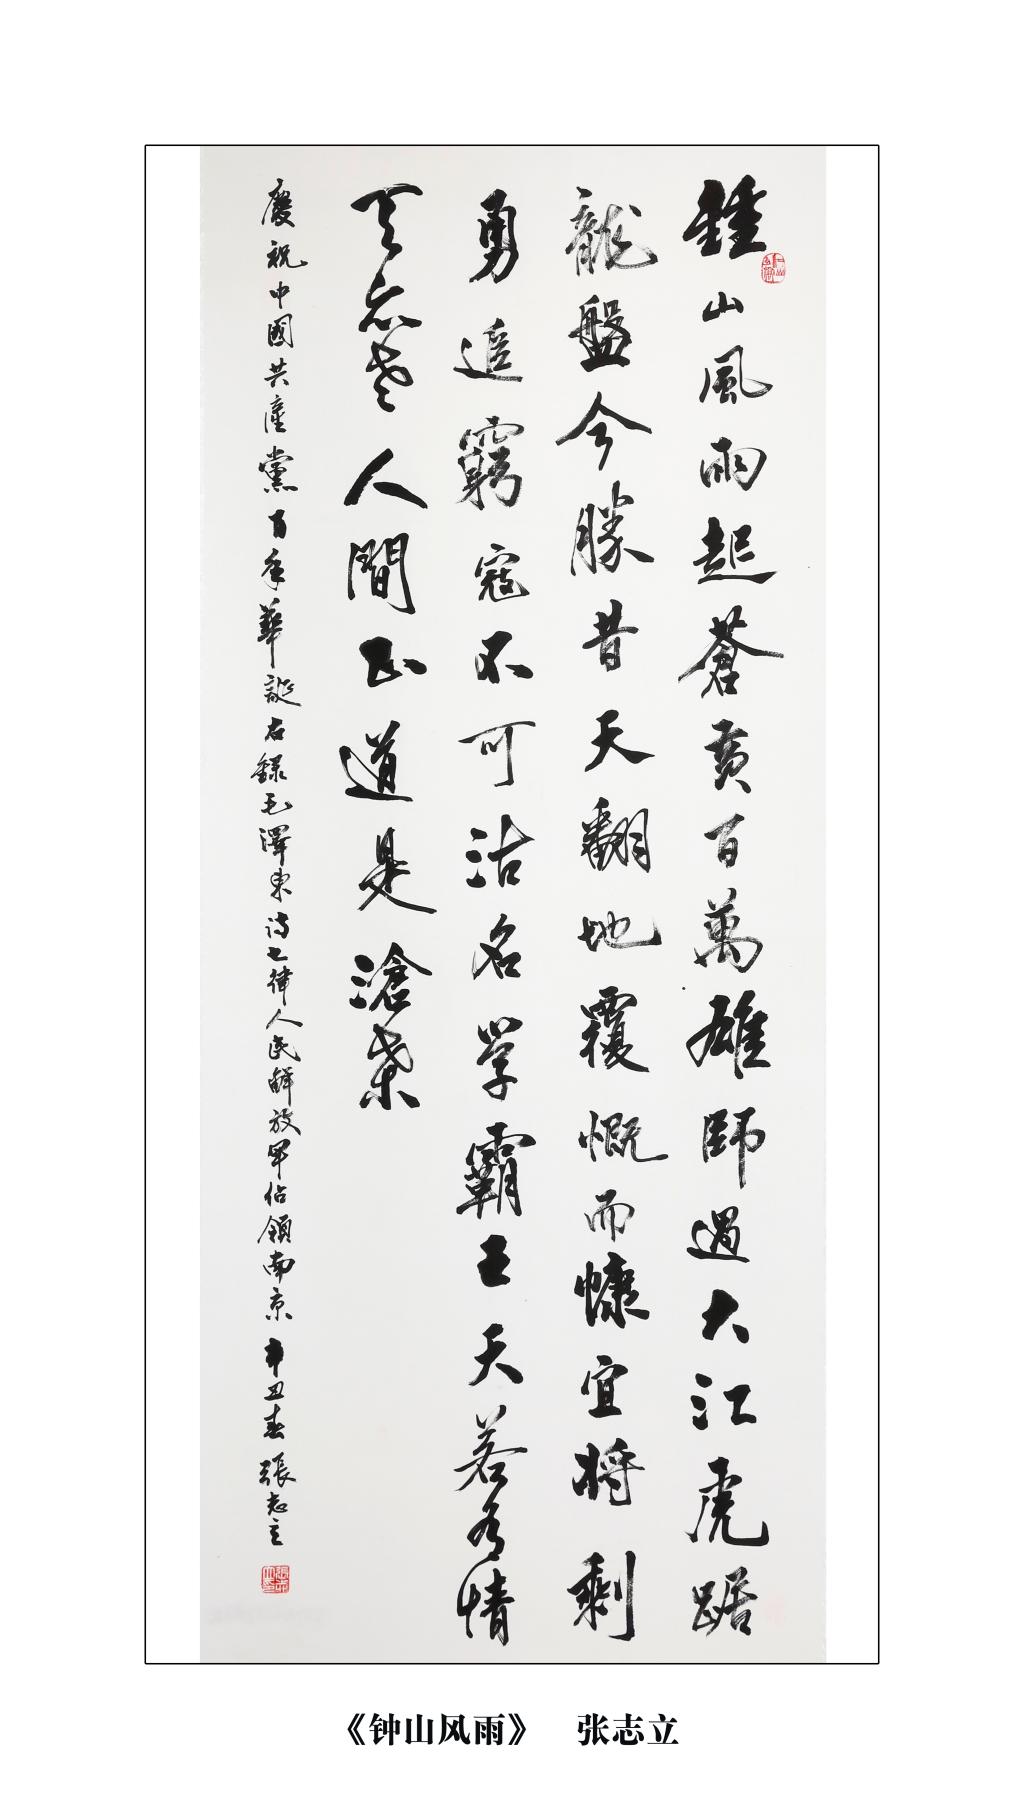 鍾山風雨起蒼黄百萬雄師過大江虎踞
龍盤今勝昔天翻地覆慨而慷宜將剩
勇追窮寇不可沽名学霸王天若有情
天亦老人間正道是滄桑
慶祝中國共產黨百年華誕右録毛澤東詩七律人民解放軍佔領南京辛丑春張志立
《钟山风雨》 张志立